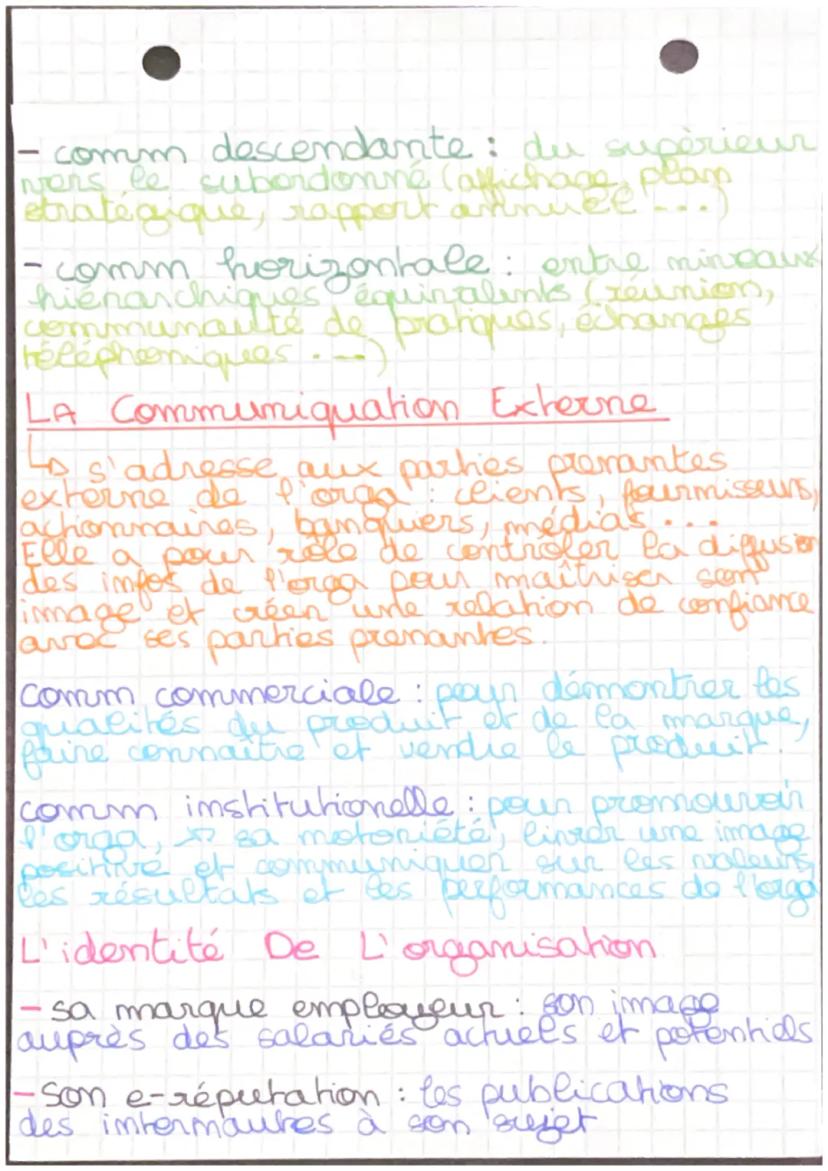 - comm descendante : du supérieur
vers le subordonné (affichage, plan
stratégique, rapport annuel ...)
- comm horizontale : entre niveaux
hiérarchiques équivalents (réunion,
communauté de pratiques, échanges
téléphoniques ...)
LA Communiquation Externe
↳ s'adresse aux parties prenantes
externe de l'orga : clients, fournisseurs,
actionnaires, banquiers, médias ...
Elle a pour rôle de contrôler la diffusion
des infos de l'orga pour maîtriser son
image et créer une relation de confiance
avec ses parties prenantes.
Comm commerciale : pour démontrer les
qualités du produit et de la marque,
faire connaître et vendre le produit.
comm institutionelle : pour promouvoir
l'orga, sa notoriété, livrer une image
positive et communiquer sur les valeurs,
les résultats et les performances de l'orga
L'identité De L'organisation
- sa marque employeur : son image
auprès des salariés actuels et potentiels
- Son e-réputation : les publications
des internautes à son sujet